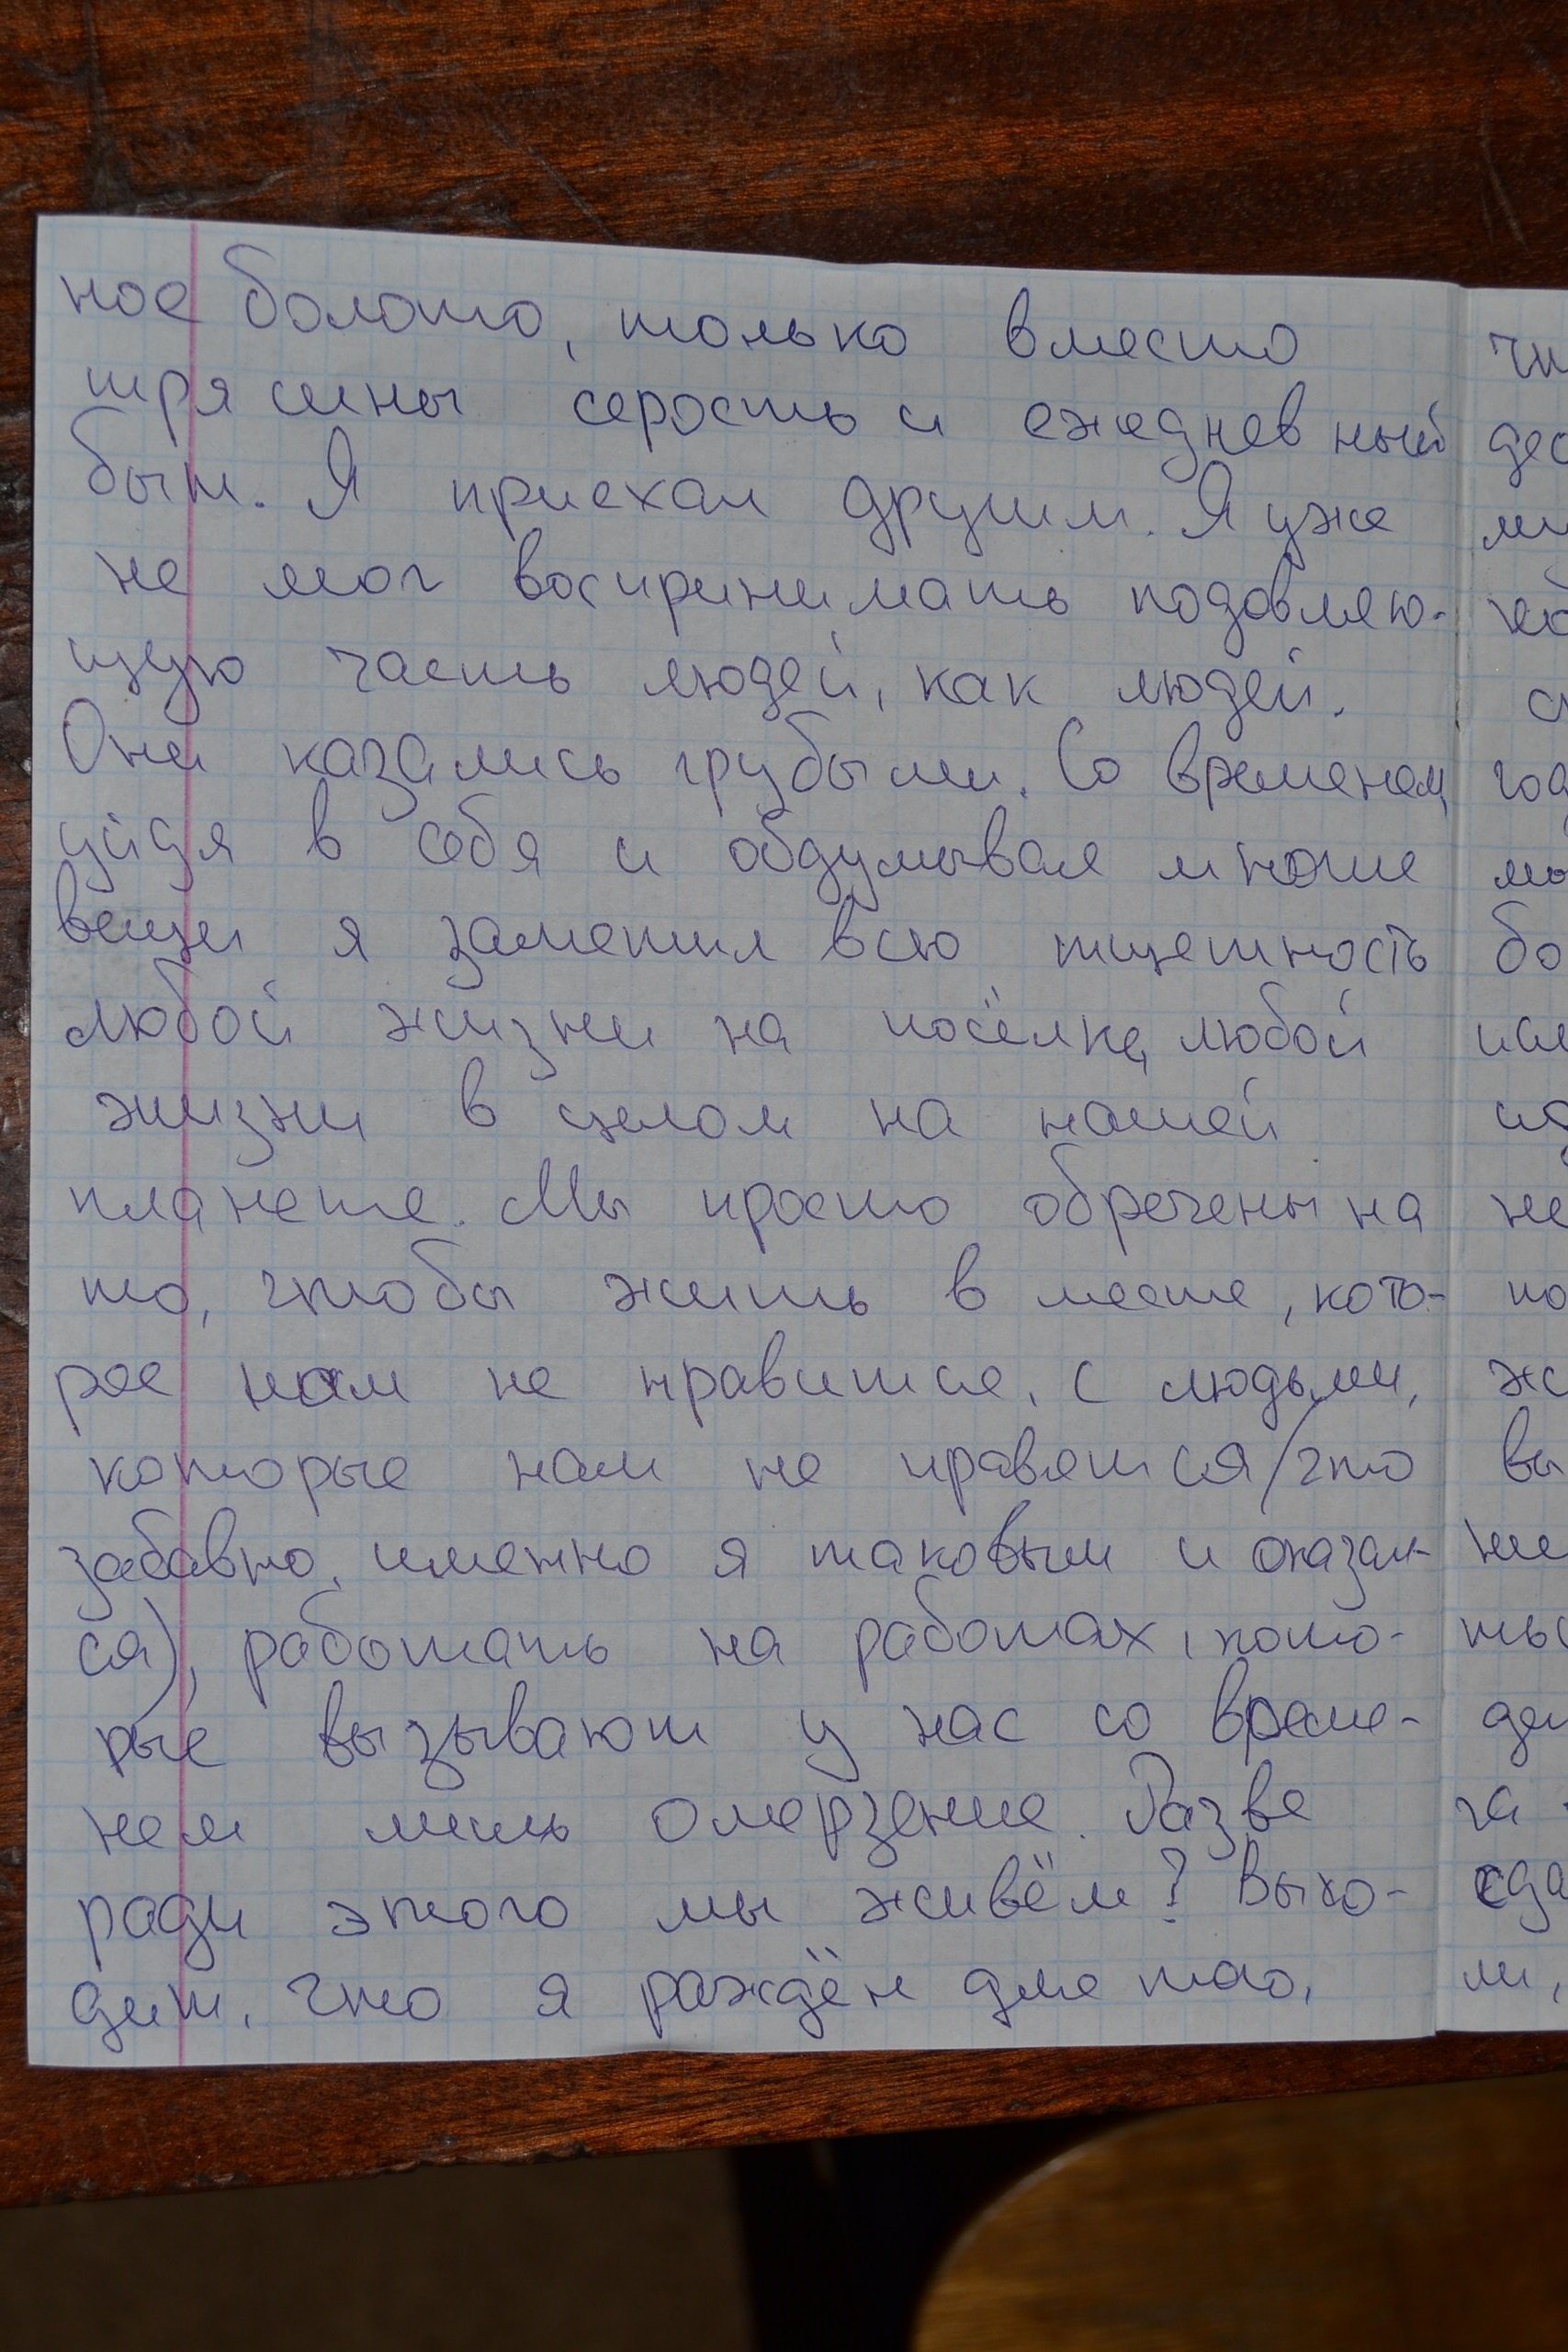 ное болото, только вместо
трясины серость и ежедневный
быт. Я приехал другим. Я уже
не мог воспринимать подавляю-
щую часть людей, как людей.
Они казались грубыми. Со временем,
уйдя в себя и обдумывая многие
вещи я заметил всю тщетность
любой жизни на посёлке, любой
жизни в целом на нашей
планете. Мы просто обречены на
то, чтобы жить в месте, кото-
рое нам не нравится, с людьми,
которые нам не нравятся (что
забавно, именно я таковым и оказал-
ся), работать на работах, кото-
рые вызывают у нас со време-
нем лишь омерзение. Разве
ради этого мы живём? Выхо-
дит, что я рождён для того,